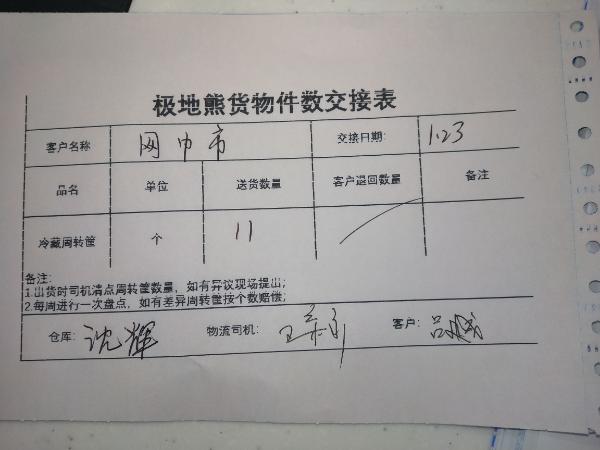 极地熊货物件数交接表
客户名称 网巾市 交接日期: 1.23
品名 单位 送货数量 客户退回数量 备注
冷藏周转筐 个 11
备注:
1.出货时司机清点周转筐数量，如有异议现场提出;
2.每周进行一次盘点，如有差异周转筐按个数赔偿;
仓库: 沈辉 物流司机: 客户: